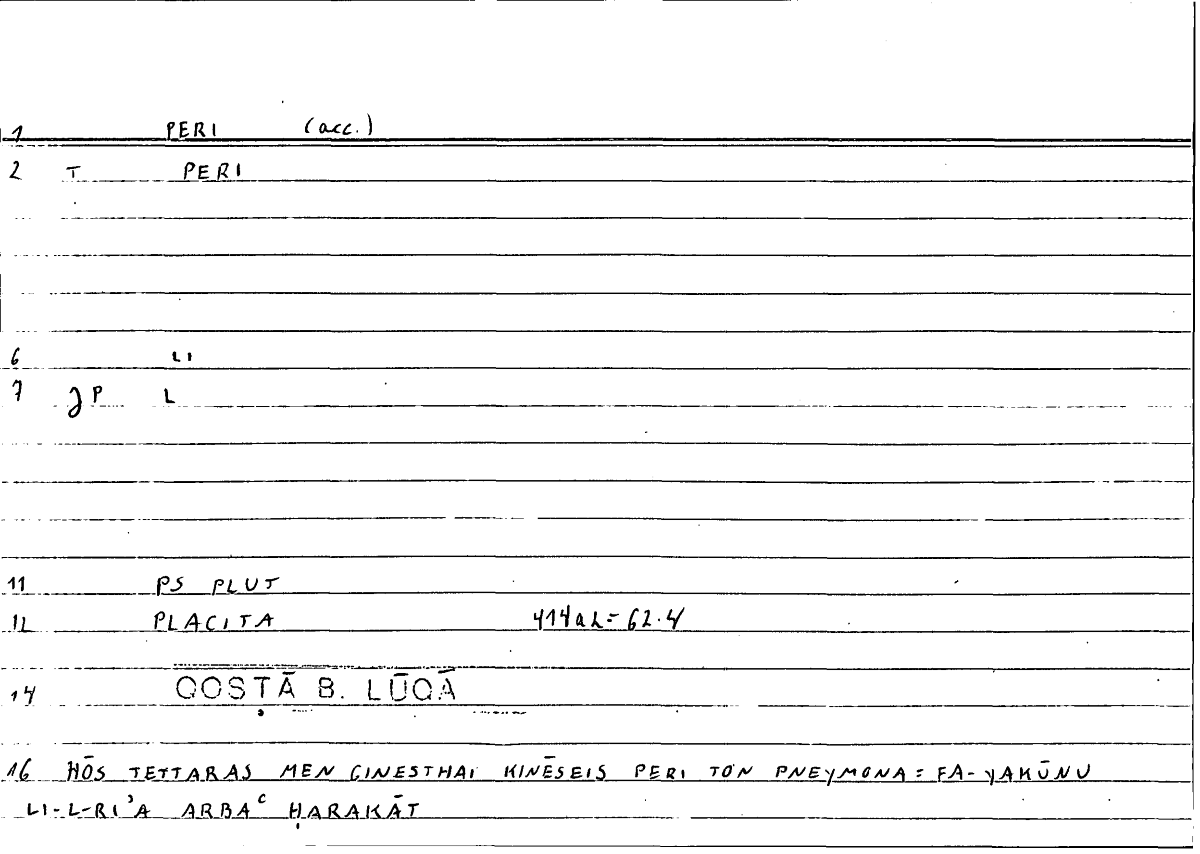 1 PERI (acc.)
2 T PERI
6 LI
7 JP L
11 PS PLUT
12 PLACITA 414a2=62.4
14 QOSṬĀ B. LŪQĀ
16 HŌS TETTARAS MEN GINESTHAI KINĒSEIS PERI TON PNEYMONA = FA-YAKŪNU
LI-L-RI'A ARBAᶜ ḤARAKĀT